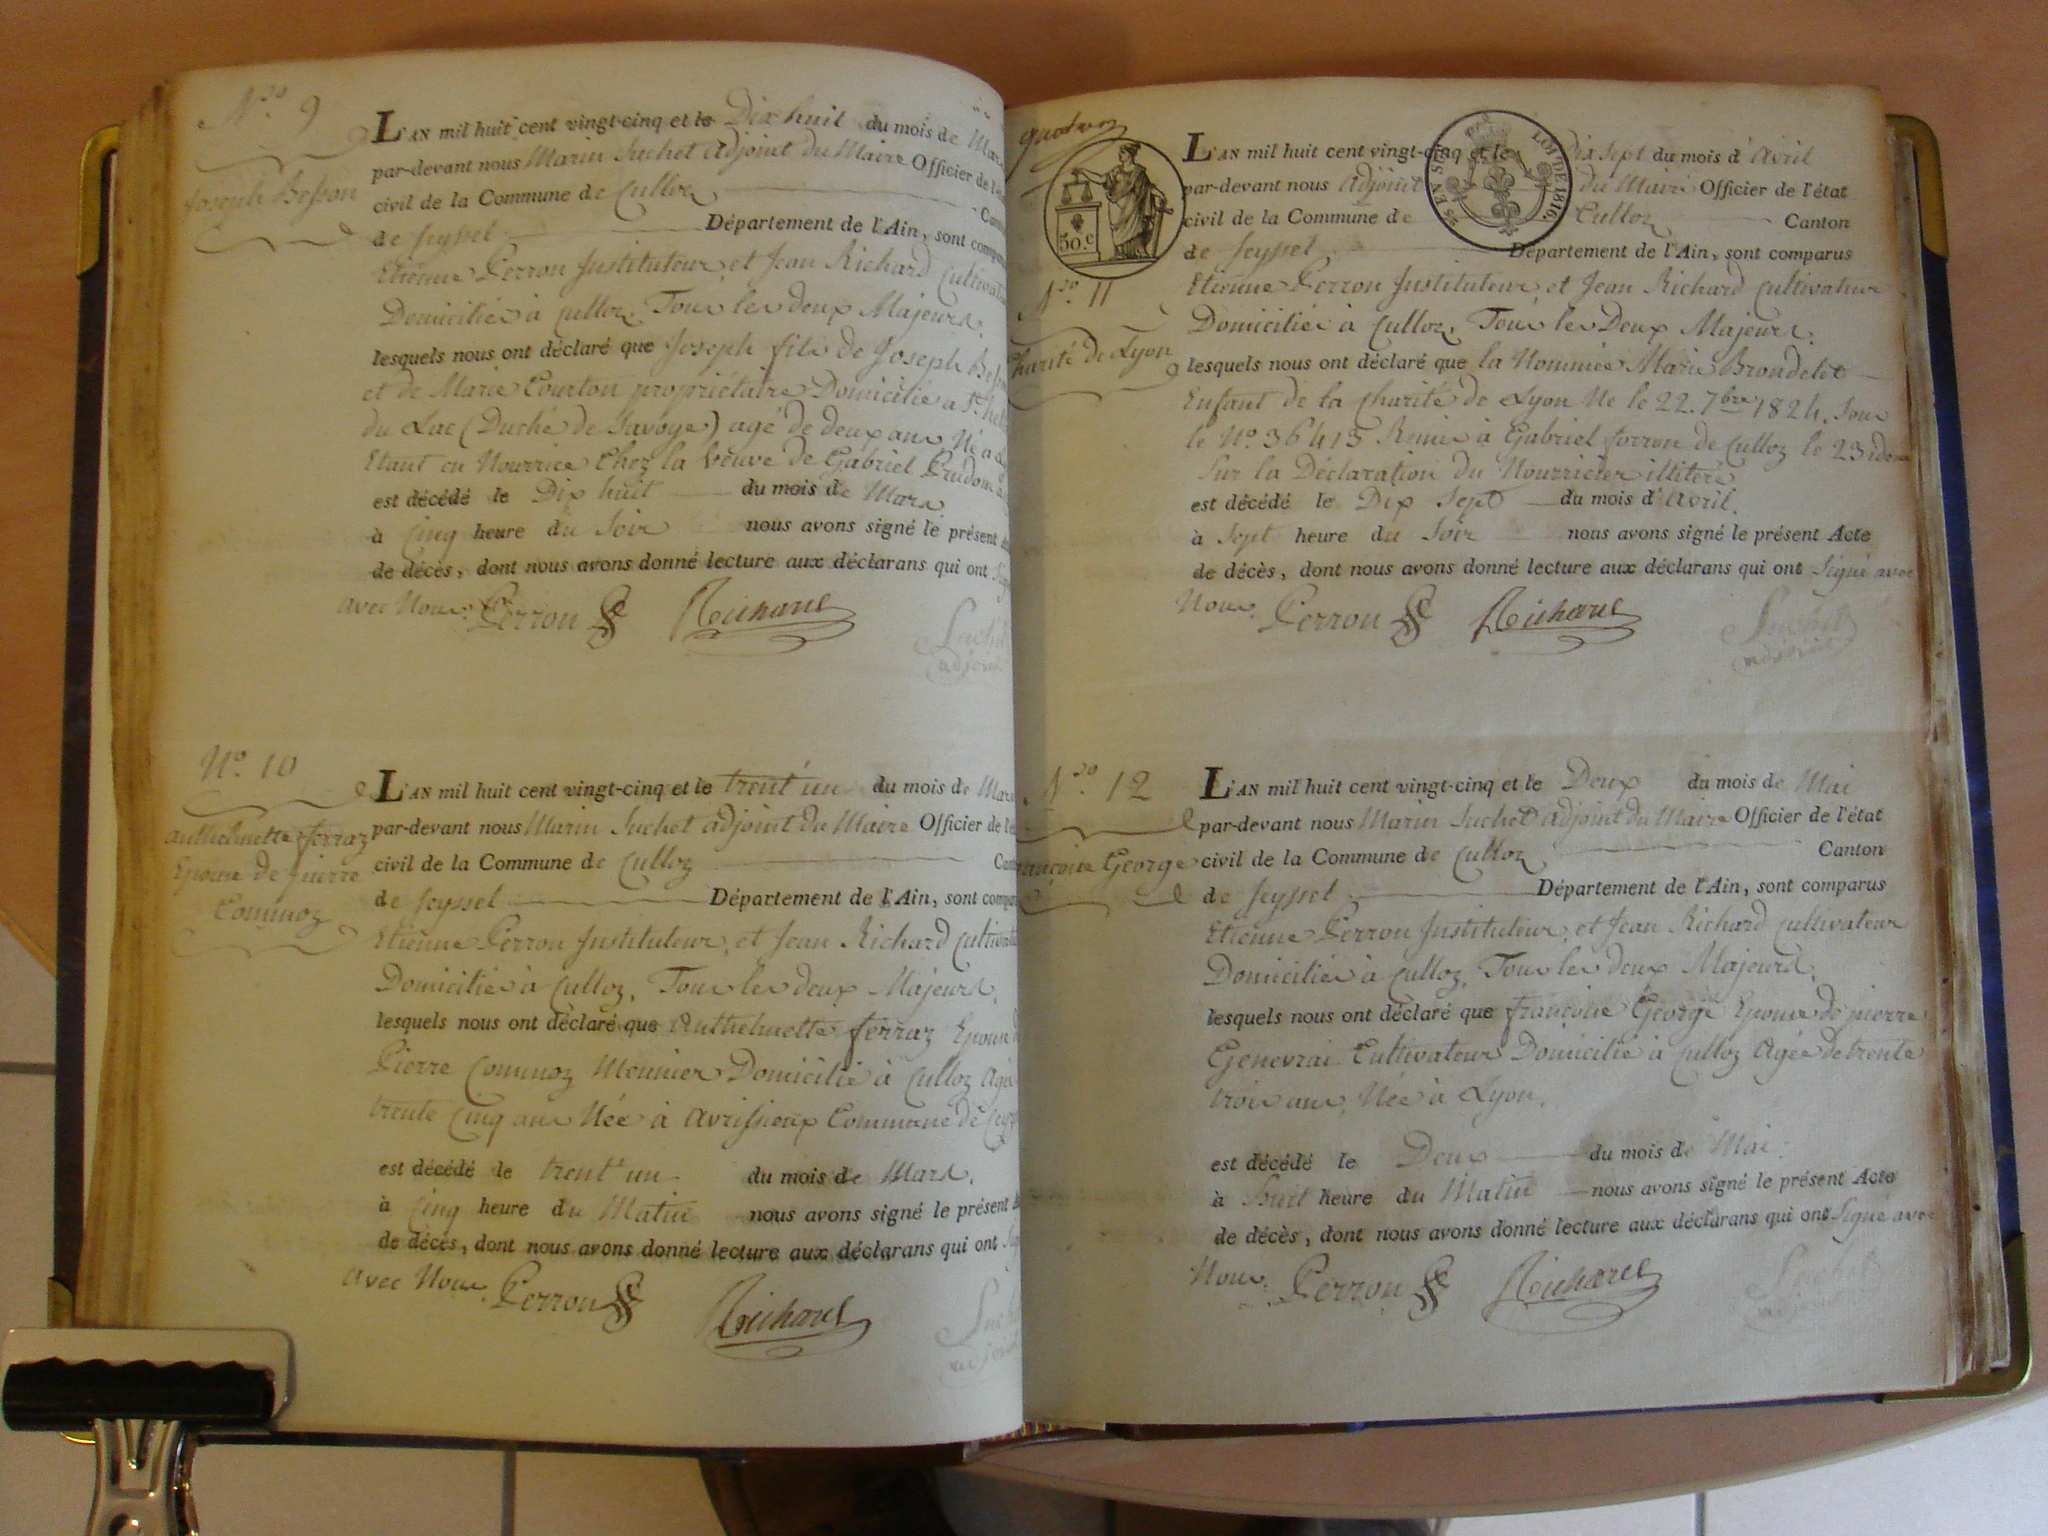 N.ro 9
Joseph Besson
L'AN mil huit cent vingt-cinq et le Dix huit du mois de Mars
par-devant nous Marin Suchet adjoint du Maire Officier de l'é
civil de la Commune de Culloz Canton
de Seyssel Département de l'Ain, sont comparus
Etienne Perron Instituteur et Jean Richard Cultivateur
Domiciliés à Culloz, Tous les deux Majeurs.
lesquels nous ont déclaré que Joseph fils de Joseph Besson
et de Marie Courton propriétaire Domicilié a St.
du Lac (Duché de Savoye) agé de deux ans Né a
Etant en Nourrice Chez la Veuve de Gabriel Prudom
est décédé le Dix huit du mois de Mars
à Cinq heure du Soir nous avons signé le présent
de décès, dont nous avons donné lecture aux déclarans qui ont
avec Nous. Perron Richard Suchet
adjoint
N.o 10
anthelmette ferraz
Epouse de pierre
Commoz
L'AN mil huit cent vingt-cinq et le trent'un du mois de Mars
par-devant nous Marin Suchet adjoint du Maire Officier de l'é
civil de la Commune de Culloz Canton
de Seyssel Département de l'Ain, sont comparus
Etienne Perron Instituteur, et Jean Richard Cultivateur
Domiciliés à Culloz, Tous les deux Majeurs.
lesquels nous ont déclaré que Anthelmette ferraz Epouse de
Pierre Commoz Meunier Domicilié à Culloz Agée
trente Cinq ans Née à Avrissieux Commune de
est décédé le trent'un du mois de Mars.
à Cinq heure du Matin nous avons signé le présent
de décès, dont nous avons donné lecture aux déclarans qui ont
avec Nous. Perron Richard Suchet
adjoint
50.c
LOI DE 1816.
N.ro 11
Charité de Lyon
L'AN mil huit cent vingt-cinq et le Dix sept du mois d'avril
par-devant nous adjoint du Maire Officier de l'état
civil de la Commune de Culloz Canton
de Seyssel Département de l'Ain, sont comparus
Etienne Perron Instituteur et Jean Richard Cultivateur
Domiciliés à Culloz, Tous les Deux Majeurs.
lesquels nous ont déclaré que la Nommée Marie Brondelet
Enfant de la Charité de Lyon Né le 22. 7bre 1824. Sous
le No. 36413 Remis à Gabriel ferron de Culloz le 23 idem
Sur la Déclaration du Nourricier illitéré
est décédé le Dix Sept du mois d'avril.
à Sept heure du Soir nous avons signé le présent Acte
de décès, dont nous avons donné lecture aux déclarans qui ont Signé avec
Nous. Perron Richard Suchet
adjoint
N.ro 12
françoise George
L'AN mil huit cent vingt-cinq et le Deux du mois de Mai
par-devant nous Marin Suchet adjoint du Maire Officier de l'état
civil de la Commune de Culloz Canton
de Seyssel Département de l'Ain, sont comparus
Etienne Perron Instituteur, et Jean Richard Cultivateur
Domiciliés à Culloz, Tous les deux Majeurs.
lesquels nous ont déclaré que françoise George Epouse de pierre
Genevrai Cultivateur Domicilié à Culloz Agée de trente
trois ans, Née à Lyon.
est décédé le Deux du mois de Mai.
à huit heure du Matin nous avons signé le présent Acte
de décès, dont nous avons donné lecture aux déclarans qui ont Signé avec
Nous. Perron Richard Suchet
adjoint